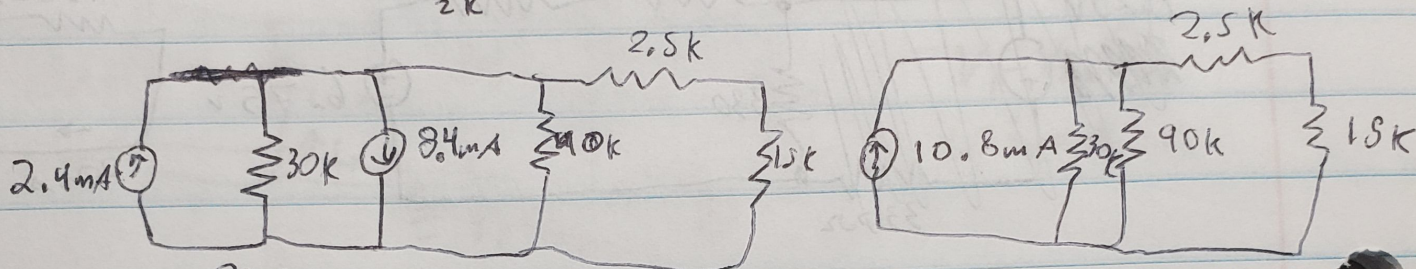 2K
2.5K
2.5K
2.4mA
30K
8.4mA
90K
15K
10.8mA
30K
90K
15K